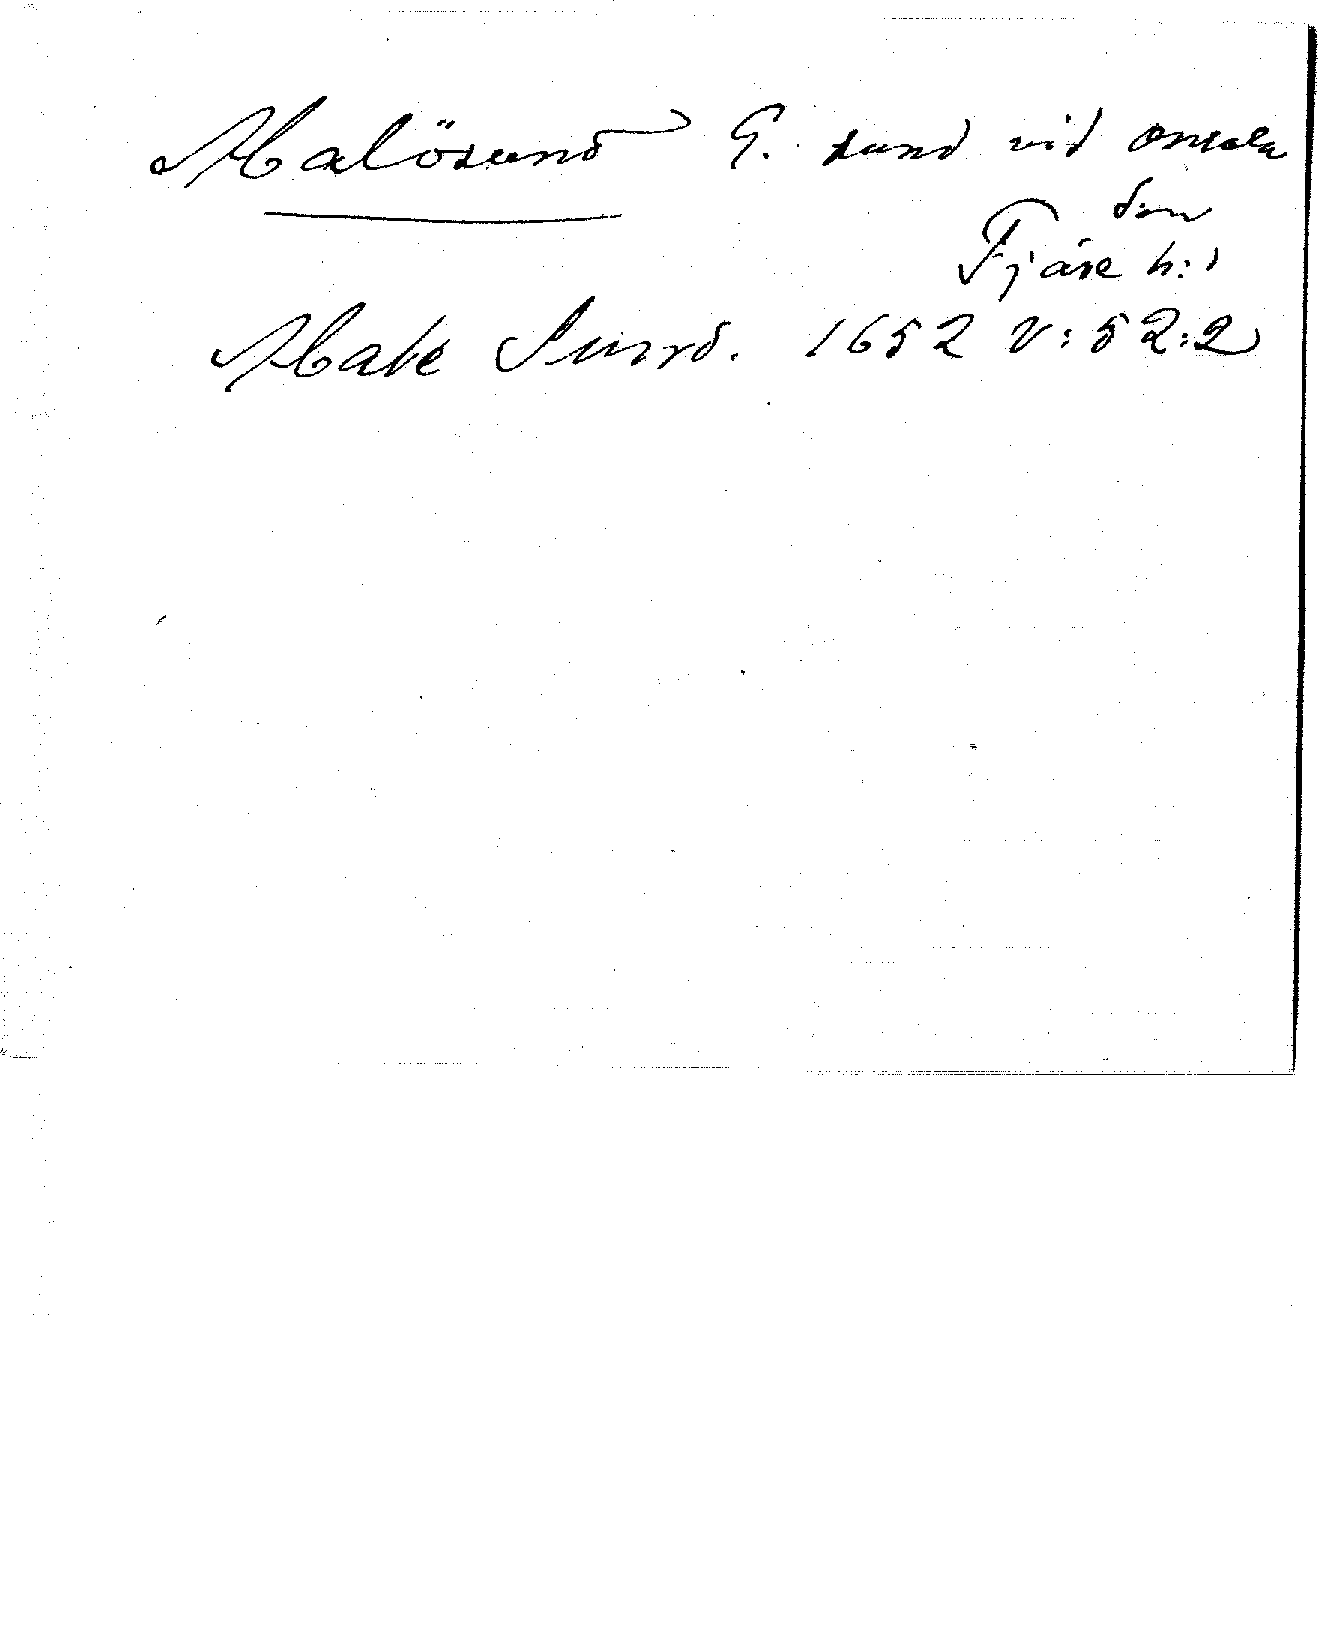 Malösund G. sund vid Onsala
sn
Fjäre h:d
Make Sund. 1652 V:52:2